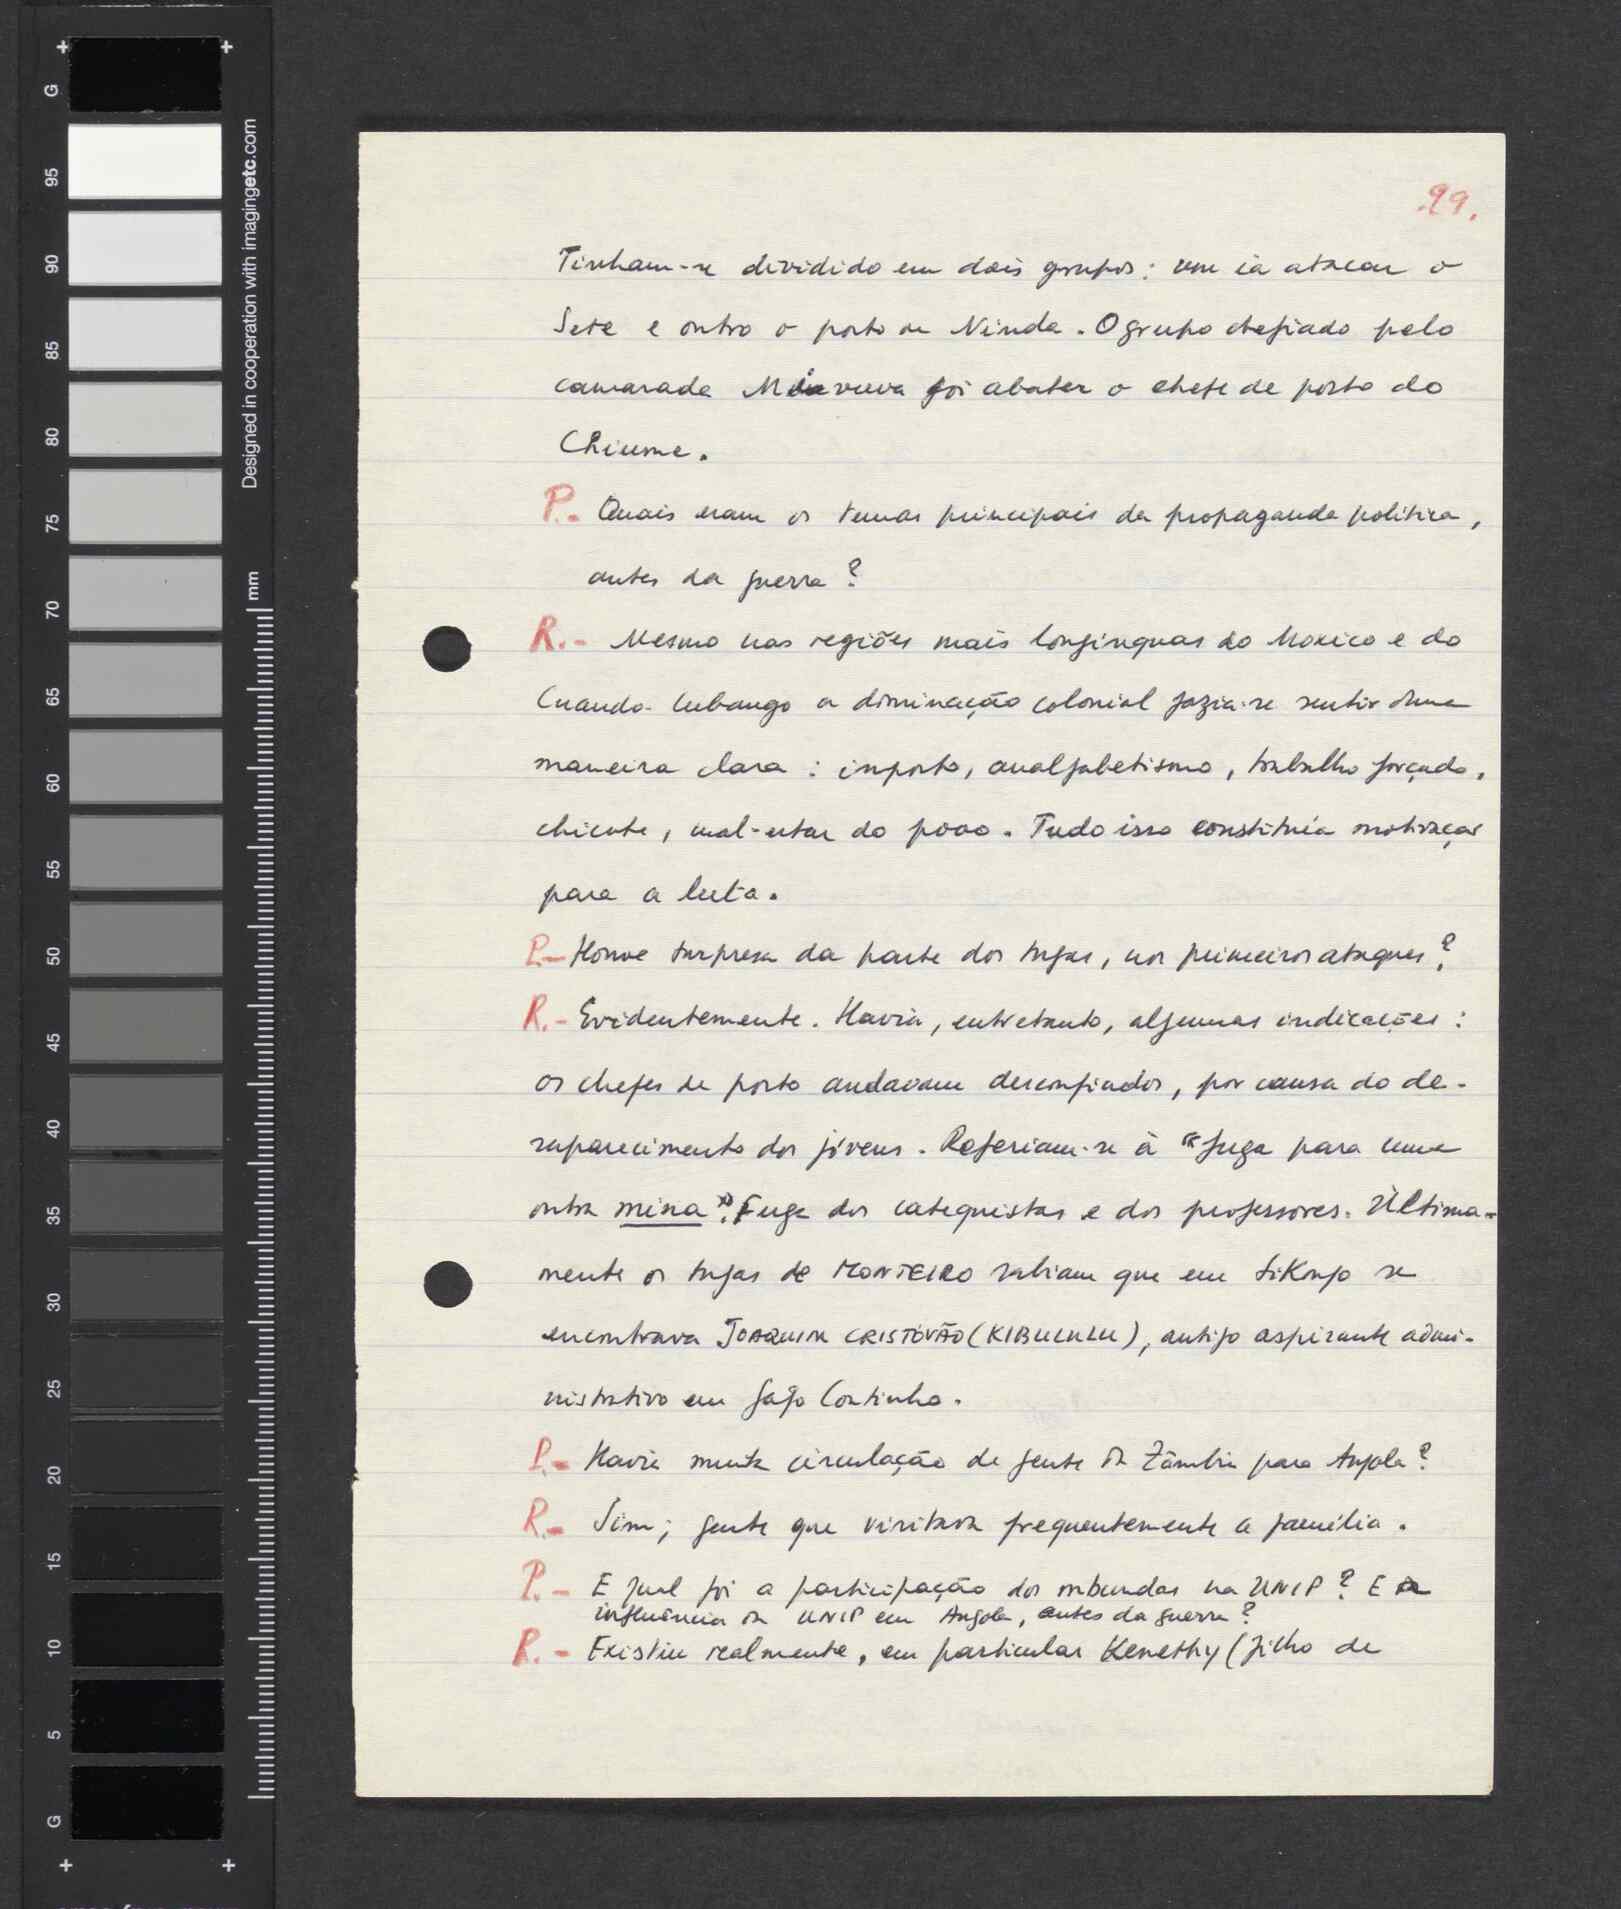 29.
Tinham-se dividido em dois grupos: um ia atacar o
Sete e outro o posto de Ninda. O grupo chefiado pelo
camarada foi abater o chefe de posto do
Chiume.
P.- Quais eram os temas principais da propaganda política,
antes da guerra?
R.- Mesmo nas regiões mais longínquas do Moxico e do
Cuando-Cubango a dominação colonial fazia-se sentir duma
maneira clara: imposto, analfabetismo, trabalho forçado,
chicote, mal-estar do povo. Tudo isso constituía motivação
para a luta.
P.- Houve surpresa da parte dos tugas, nos primeiros ataques?
R.- Evidentemente. Havia, entretanto, algumas indicações:
os chefes de posto andavam desconfiados, por causa do de-
saparecimento dos jóvens. Referiam-se à "fuga para uma
outra mina". Fuga dos catequistas e dos professores. Última-
mente os tugas de MONTEIRO sabiam que em SiKongo se
encontrava JOAQUIM CRISTÓVÃO (KIBULULU), antigo aspirante admi-
nistrativo em Gago Coutinho.
P.- Havia muita circulação de gente da Zâmbia para Angola?
R.- Sim; gente que visitava frequentemente a família.
P.- E qual foi a participação dos mbundas na UNIP? E a
influência da UNIP em Angola, antes da guerra?
R.- Existiu realmente, em particular Kenethy (filho de
Designed in cooperation with imagingetc.com
mm
G
95
90
85
80
75
70
65
60
55
50
45
40
35
30
25
20
15
10
5
G